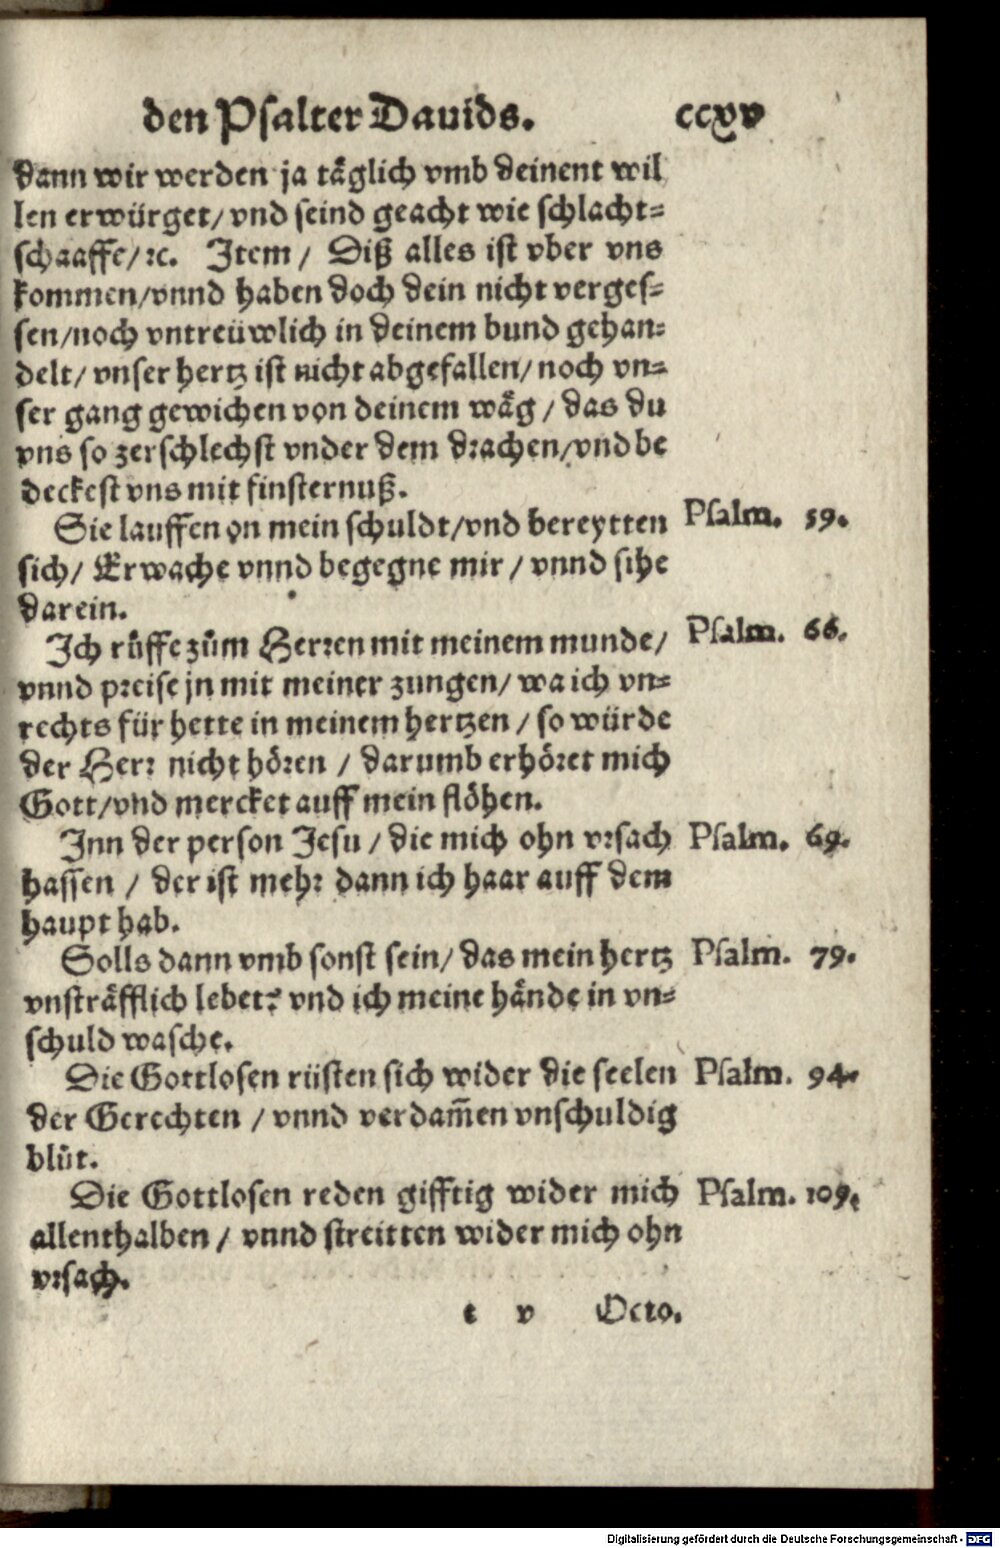 den Psalter Dauids. ccxv
dann wir werden ja täglich vmb deinent wil
len erwürget/ vnd seind geacht wie schlacht=
schaaffe/ ꝛc. Item / Diß alles ist vber vns
kommen/vnnd haben doch dein nicht verges=
sen/noch vntreüwlich in deinem bund gehan=
delt/ vnser hertz ist nicht abgefallen/ noch vn=
ser gang gewichen von deinem wäg / das du
vns so zerschlechst vnder dem drachen/vnd be
deckest vns mit finsternuß.
Sie lauffen on mein schuldt/vnd bereytten Psalm. 59.
sich/ Erwache vnnd begegne mir / vnnd sihe
darein.
Ich rüffe zům Herren mit meinem munde/ Psalm. 66.
vnnd preise jn mit meiner zungen/ wa ich vn=
rechts für hette in meinem hertzen / so würde
der Herr nicht hören / darumb erhöret mich
Gott/vnd mercket auff mein flöhen.
Inn der person Jesu / die mich ohn vrsach Psalm. 69.
hassen / der ist mehr dann ich haar auff dem
haupt hab.
Solls dann vmb sonst sein/ das mein hertz Psalm. 79.
vnsträfflich lebet? vnd ich meine hände in vn=
schuld wasche.
Die Gottlosen rüsten sich wider die seelen Psalm. 94.
der Gerechten / vnnd verdam̃en vnschuldig
blůt.
Die Gottlosen reden gifftig wider mich Psalm. 109.
allenthalben / vnnd streitten wider mich ohn
vrsach.
t v Octo.
Digitalisierung gefördert durch die Deutsche Forschungsgemeinschaft - DFG